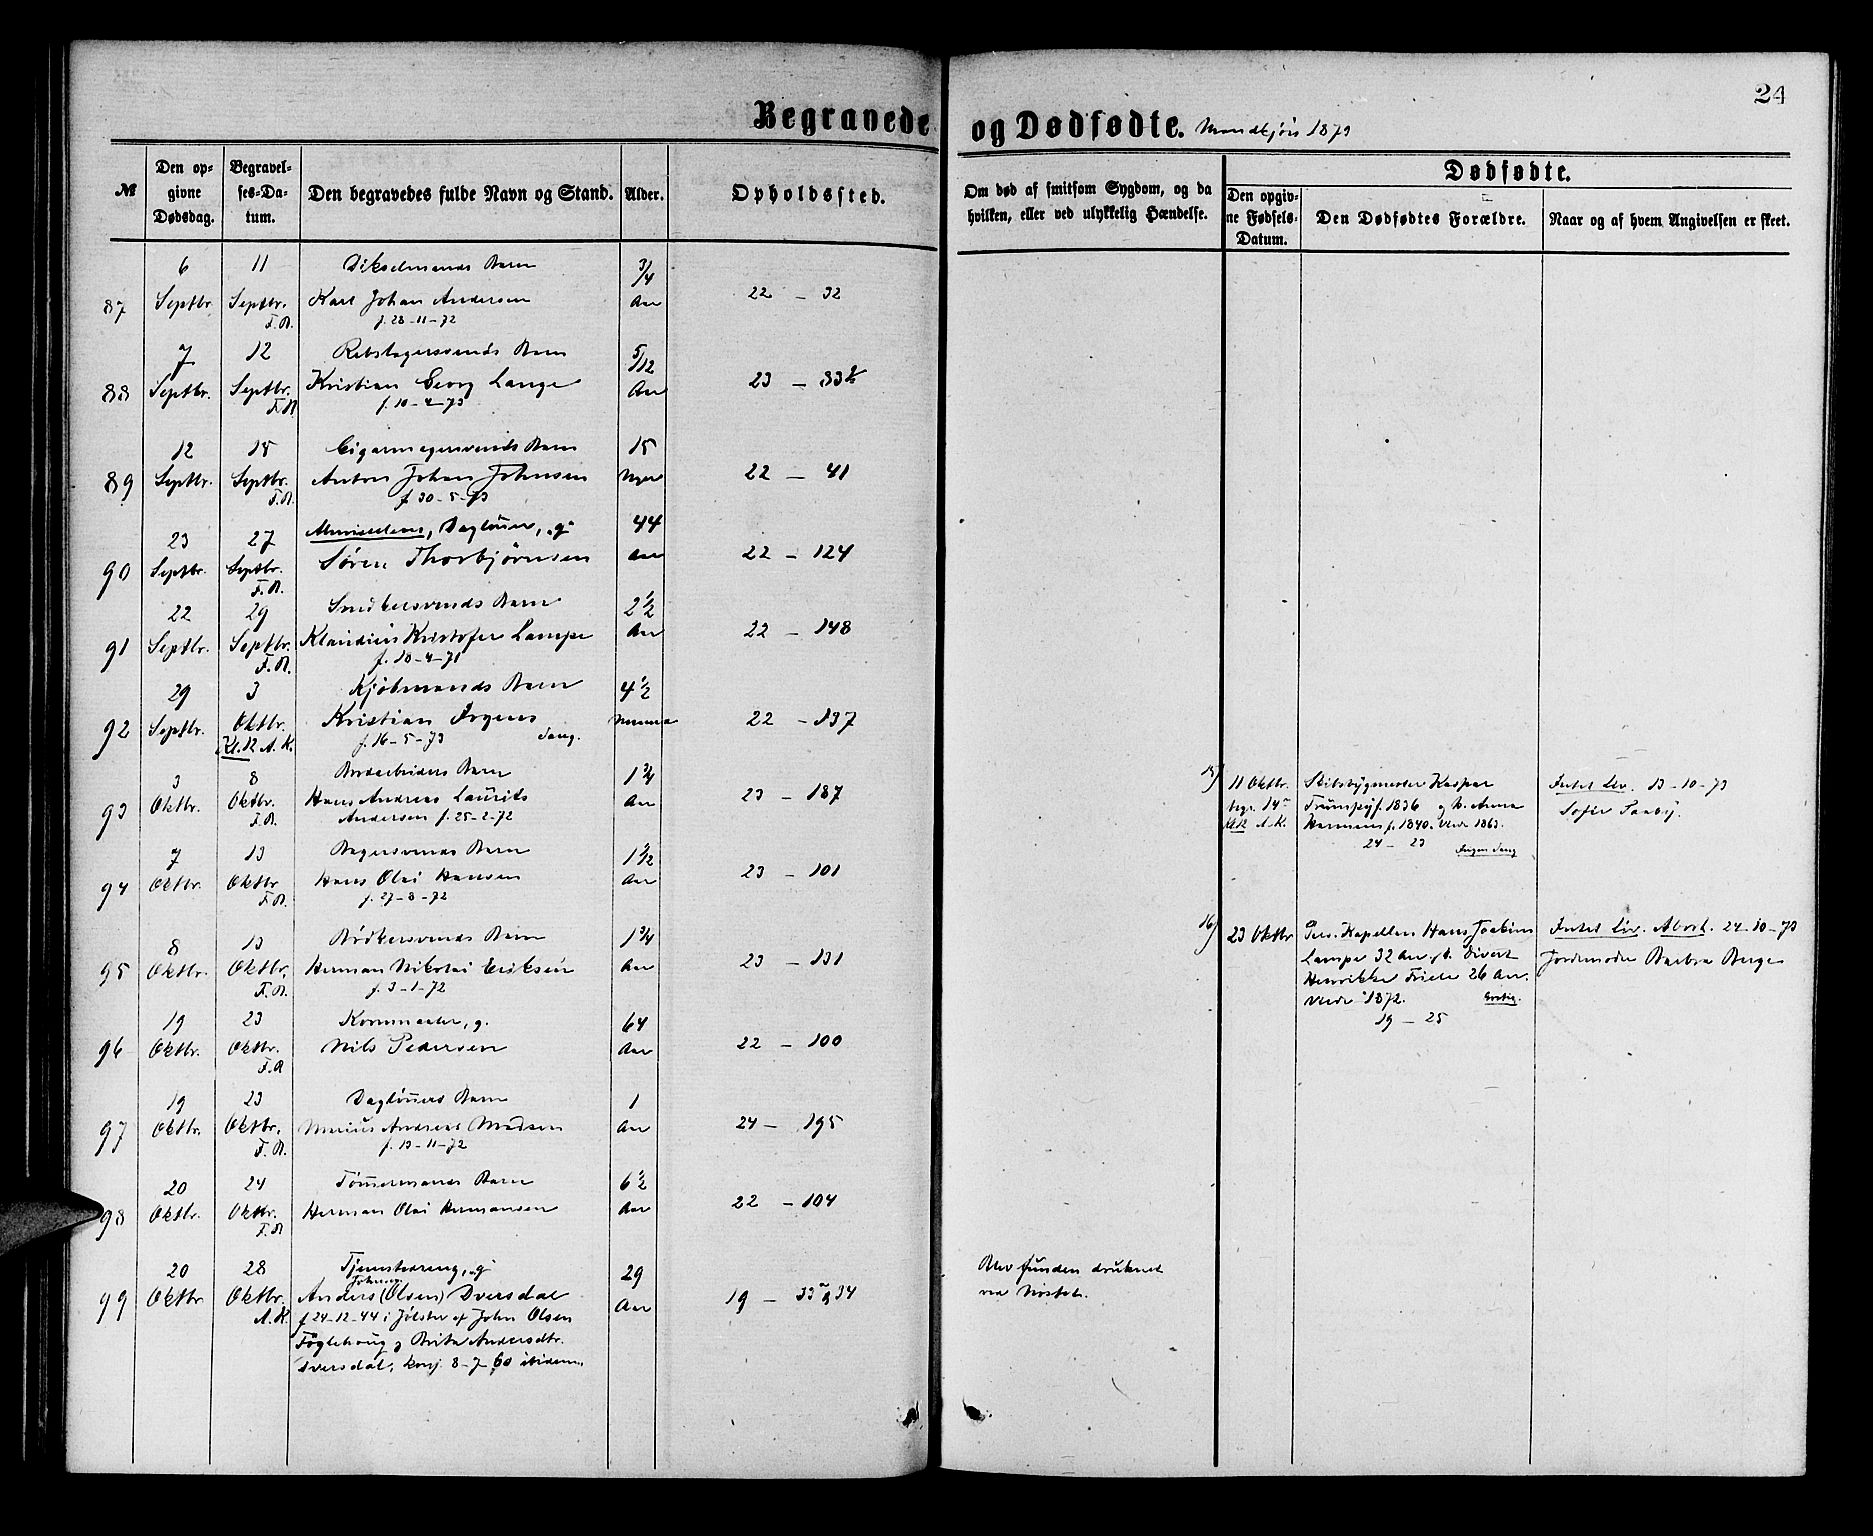 24
Begravede og Dødfødte. Mandkjøn 1873
№
Den op-
givne
Dødsdag.
Begravel-
ses-Da-
tum.
Den begravedes fulde Navn og Stand.
Alder.
Opholdssted.
Om død af smitsom Sygdom, og da
hvilken, eller ved ulykkelig Hændelse.
Dødfødte.
Den opgiv-
ne Fødsels-
Datum.
Den Dødfødtes Forældre.
Naar og af hvem Angivelsen er skeet.
6 11 Dikselmands Barn 3/4
87 Septbr. Septbr. Karl Johan Andersen Aar 22 - 32
F.R. f. 28-11-72
7 12 Rebslagersvends Barn 5/12
88 Septbr. Septbr. Kristian Georg Lange Aar 23 - 83½
F.R. f. 10-4-73
12 18 Cigarmagersvends Barn 15
89 Septbr. Septbr. Anton Johan Johnsen Uger 22 - 41
F.R. f. 30-5-73
23 27 Almisselem, Daglönner, "g" 44
90 Septbr. Septbr. Søren Thorbjørnsen Aar 22 - 124
F.R.
22 29 Snedkersvends Barn 2½
91 Septbr. Septbr. Klaudius Kristofer Lampe Aar 22 - 148
F.R. f. 10-4-71
29 3 Kjøbmands Barn 4½
92 Septbr. Oktbr. Kristian Irgens 22 - 137
Kl.12 A.K. f. 16-5-73
3 8 Barn 1¾
93 Oktbr. Oktbr. Hans Andreas Laurits Aar 23 - 187
F.R. Andersen f. 25-2-72
7 13 Bagersvends Barn 1½
94 Oktbr. Oktbr Hans Olai Hansen Aar 23 - 101
F.R. f. 27-8-72
8 13 Bödkersvends Barn 1¾
95 Oktbr. Oktbr. Herman Nikolai Eriksen Aar 23 - 131
F.R. f. 3-1-72
19 23 Kornmaaler, g. 64
96 Oktbr. Oktbr. Nils Pedersen Aar 22 - 100
F.R
19 23 Daglönners Barn 1
97 Oktbr. Oktbr. Marius Andreas Madsen Aar 24 - 195
F.R. f. 13-11-72
20 24 Tömmermands Barn 6½
98 Oktbr. Oktbr. Herman Olai Hermansen Aar 22 - 104
F.R
20 28 Tjenestedreng, "g" 29
Johnsen
99 Oktbr Oktbr. Anders (Olsen) Dversdal Aar 19 - 33 & 34
A.K. f 24-12-44 i Jölster af John Olsen
Föglehoug og Brita Andersdtr.
Dversdal, konf. 8-7-60 ibidem.
Blev funden druknet
ved Nöstet.
15) 11 Oktbr. Skibsbygmester Kaspar Intet Liv. 13-10-73
begr. 14de Trumpy f. 1836 og h. Anna Sofie Saaby.
Kl.12 A.K. Hermans f. 1840. Viede 1863.
24 - 23
16) 23 Oktbr Pers. Kapellan Hans Joakim Intet Liv. Abort. 24-10-73
Lampe 32 Aar og h. Divert Jordemoder Barbra Berge
Henrikke Friele 26 Aar.
Viede 1872.
19 - 25